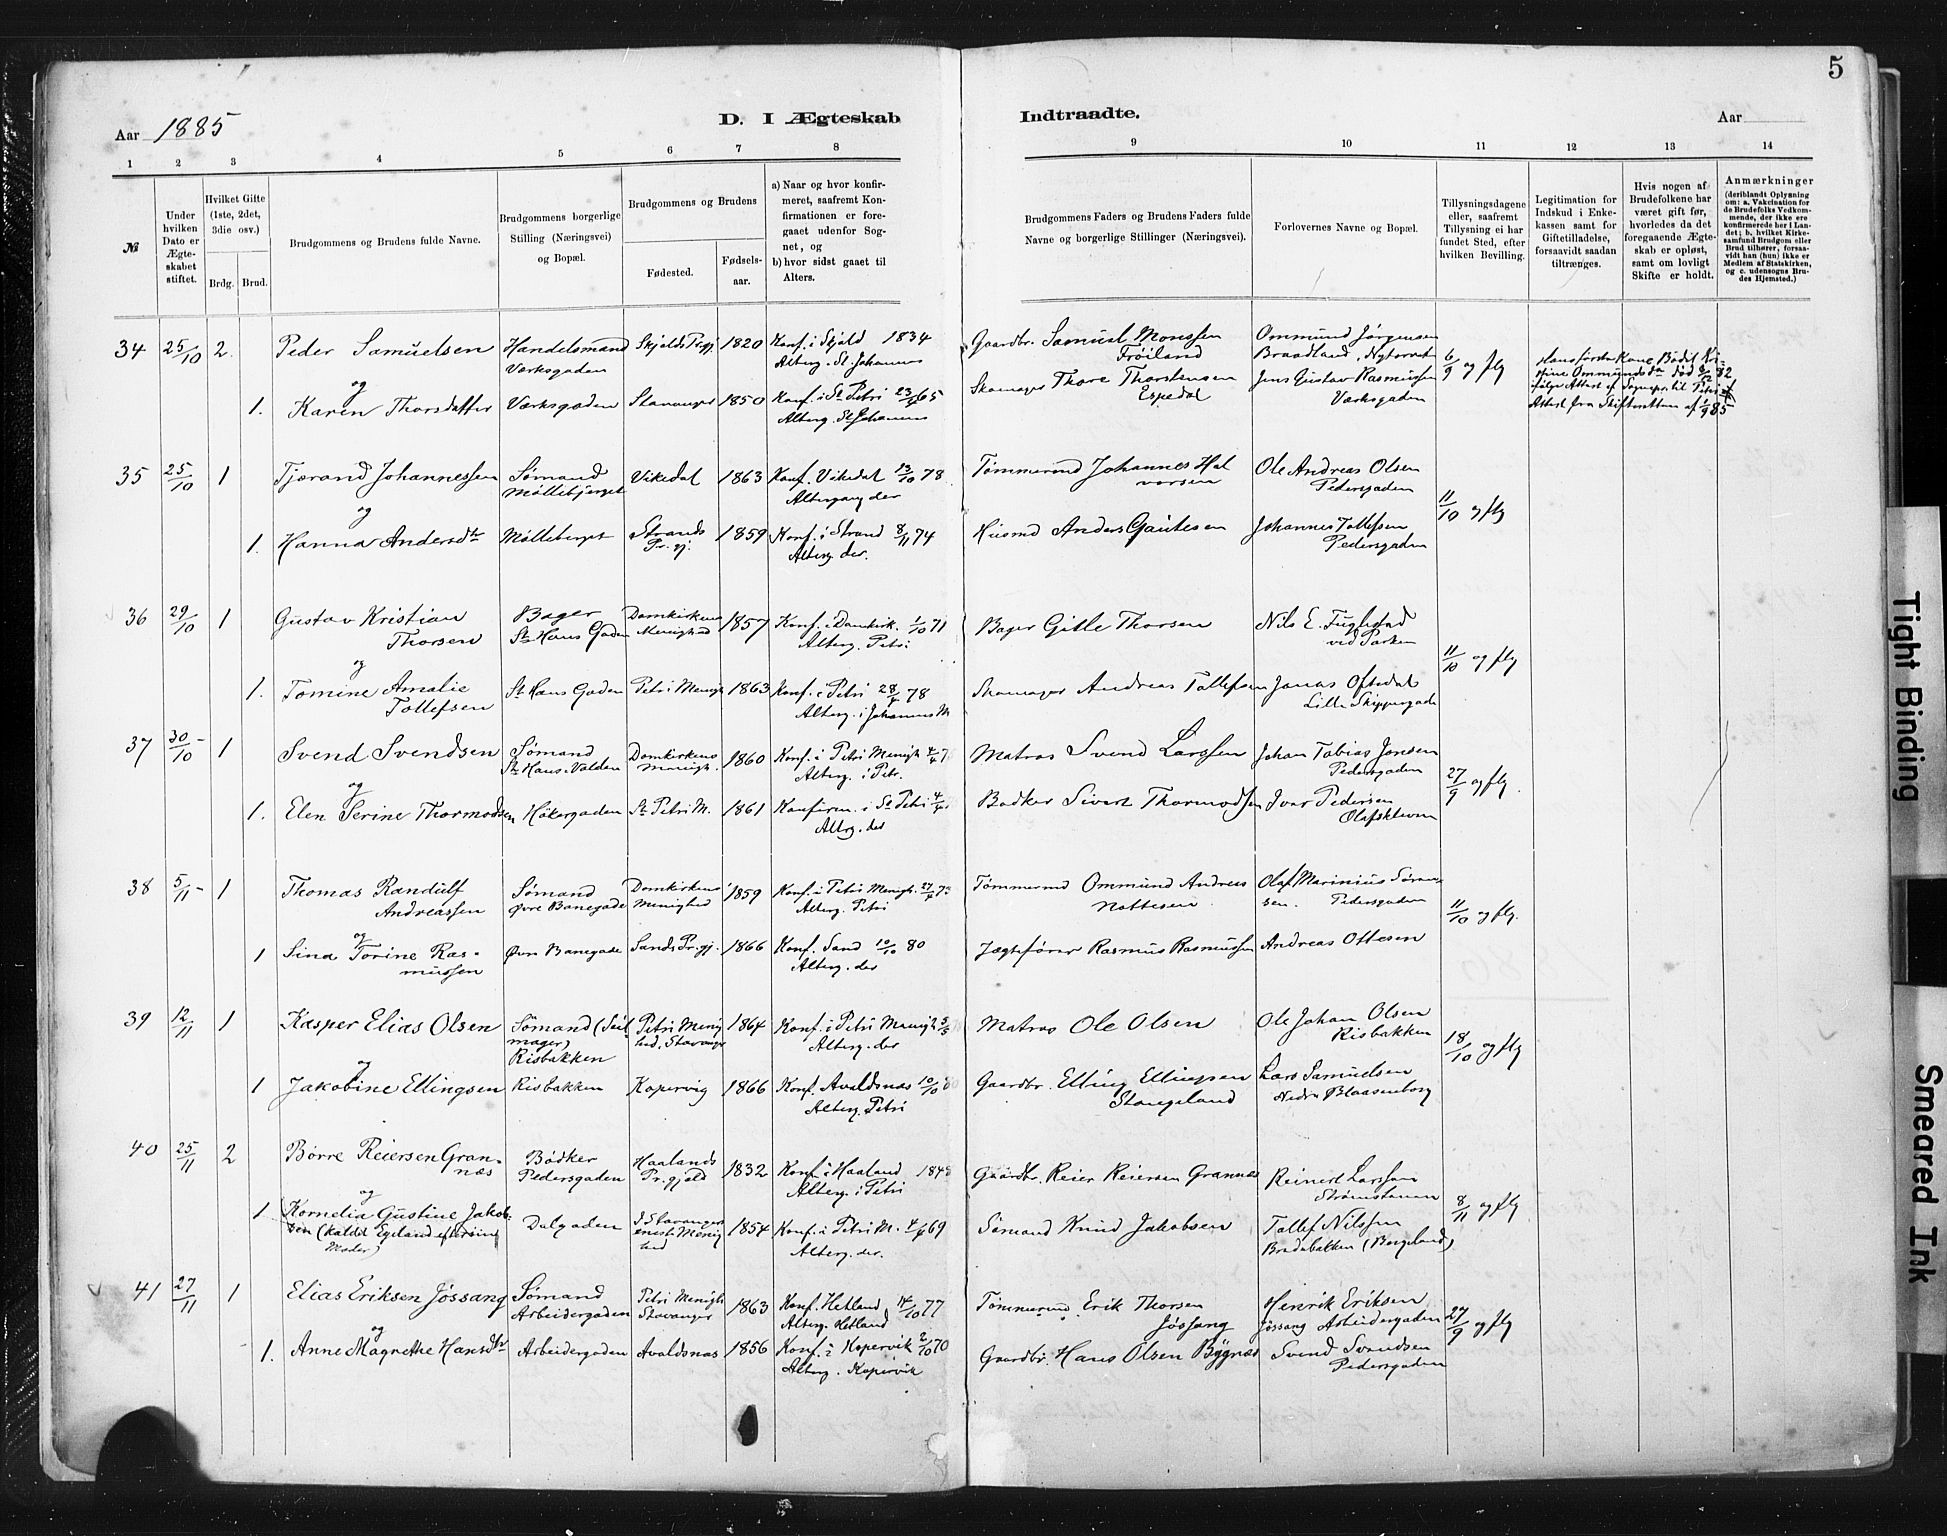 5
Aar 1885
D. I Ægteskab
Indtraadte.
Aar
1 2 3 4 5 6 7 8 9 10 11 12 13 14
№
Under hvilken Dato er Ægteskabet stiftet.
Hvilket Gifte (1ste, 2det, 3die osv.)
Brdg. Brud.
Brudgommens og Brudens fulde Navne.
Brudgommens borgerlige Stilling (Næringsvei) og Bopæl.
Brudgommens og Brudens
Fødested.
Fødsels-aar.
a) Naar og hvor konfirmeret, saafremt Konfirmationen er foregaaet udenfor Sognet, og
b) hvor sidst gaaet til Alters.
Brudgommens Faders og Brudens Faders fulde Navne og borgerlige Stillinger (Næringsvei).
Forlovernes Navne og Bopæl.
Tillysningsdagene eller, saafremt Tillysning ei har fundet Sted, efter hvilken Bevilling.
Legitimation for Indskud i Enkekassen samt for Giftetilladelse, forsaavidt saadan tiltrænges.
Hvis nogen af Brudefolkene har været gift før, hvorledes da det foregaaende Ægteskab er opløst, samt om lovligt Skifte er holdt.
Anmærkninger
(deriblandt Oplysning om: a. Vakcination for de Brudefolks Vedkommende, der ikke ere konfirmerede her i Landet; b. hvilket Kirkesamfund Brudgom eller Brud tilhører, forsaavidt han (hun) ikke er Medlem af Statskirken, og c. udensogns Brudes Hjemsted.)
34 25/10 2 Peder Samuelsen Handelsmand Værksgaden Skjolds Prgj. 1820 Konf. i Skjold 1834 Alterg. St. Johannes Gaardbr. Samuel Monssen Frøiland Ommund Jørgensen Braadland, Nytorvet 6/9 og flg
Hans første Kone Bodil Kristine Ommundsdtr død
og
1. Karen Thorsdatter Værksgaden Stavanger 1850 Konf. i St Petri 23/4 65 Alterg. St Johannes Skomager Thore Thorstensen Espedal Jens Gustav Rasmussen Værksgaden
Attest fra Skifteretten af 1/9 85
35 25/10 1 Tjerand Johannessen Sømand Møllebjerget Vikedal 1863 Konf. Vikedal 13/10 78 Altergang der Tømmermd Johannes Halvorsen Ole Andreas Olsen Pedersgaden 11/10 og flg
og
1. Hanna Andersdtr Møllebjerget Strands Pr.gj. 1859 Konf. i Strand 8/11 74 Alterg. der. Husmd Anders Gautesen Johannes Tollefsen Pedersgaden
36 29/10 1 Gustav Kristian Thorsen Bager St Hans Gaden Domkirkens Menighed 1857 Konf. i Domkirk. 1/10 71 Alterg. Petri Bager Gitle Thorsen Nils E. Fuglestad ved Parken 11/10 og flg
og
1. Tomine Amalie Tollefsen St Hans Gaden Petri Menigh 1863 Konf. i Petri 28/4 78 Alterg. i Johannes M Skomager Andreas Tollefsen Jonas Oftedal Lille Skippergade
37 30/10 1 Svend Svendsen Sømand St Hans Volden Domkirkens Menigh. 1860 Konf. i Petri Menigh 4/4 Alterg. i Petri Matros Svend Larssen Johan Tobias Jonsen Pedersgaden 27/9 og flg.
og
1. Elen Serine Thormodsen Høkergaden St Petri M. 1861 Konfirm. i St Petri Alterg. der Bødker Sivert Thormodsen Ivar Pedersen Olafskleven
38 5/11 1 Thomas Randulf Andreassen Sømand Øvre Banegade Domkirkens Menighed 1859 Konf. i Petri Menigh. 27/4 Alterg. Petri Tømmermd Ommund Andreas Olaf Marinius Sørensen. Pedersgaden 11/10 og flg.
og
1 Sina Torine Rasmussen Øvre Banegade Sands Pr.gj. 1866 Konf. Sand 10/10 80 Alterg. der Jægtefører Rasmus Rasmussen Andreas Ottesen
39 12/11 1 Kasper Elias Olsen Sømand (Seilmager) Risbakken Petri Menighed, Stavanger 1864 Konf. i Petri Menigh Alterg. der Matros Ole Olsen Ole Johan Olsen Risbakken 18/10 og flg
og
1 Jakobine Ellingsen Risbakken Kopervig 1866 Konf. Avaldsnæs 10/10 Alterg. Petri Gaardbr. Elling Ellingsen Stangeland Lars Samuelsen Nedre Blaasenborg
40 25/11 2 Børre Reiersen Grannæs Bødker Pedersgaden Haalands Pr.gjeld 1832 Konf. i Haaland Alterg. i Petri Gaardbr. Reier Reiersen Grannes Reinert Larssen Strømstenen 8/11 og flg
og
1 Kornelia Gustine Jakobsen (kaldt Egeland efter sin Moder) Dalgaden I Stavangers eneste Menighed 1854 Konf. i Petri M. 4/4 69 Alterg. der. Sømand Knud Jakobsen Tollef Nilssen Bradebakken (Borgeland)
41 27/11 1 Elias Eriksen Jøssang Sømand Arbeidergaden Petri Menigh Stavanger 1863 Konf. Hetland 14/10 77 Alterg. Hetland Tømmermd. Erik Thorsen Jøssang Henrik Eriksen Jøssang Arbeidergaden 27/9 og flg
og
1. Anne Magnethe Hansdtr Arbeidergaden Avaldsnæs 1856 Konf. i Kopervik 2/10 70 Alterg. Kopervik Gaardbr. Hans Olsen Bygnæs Svend Svendsen Pedersgaden
Tight Binding
Smeared Ink